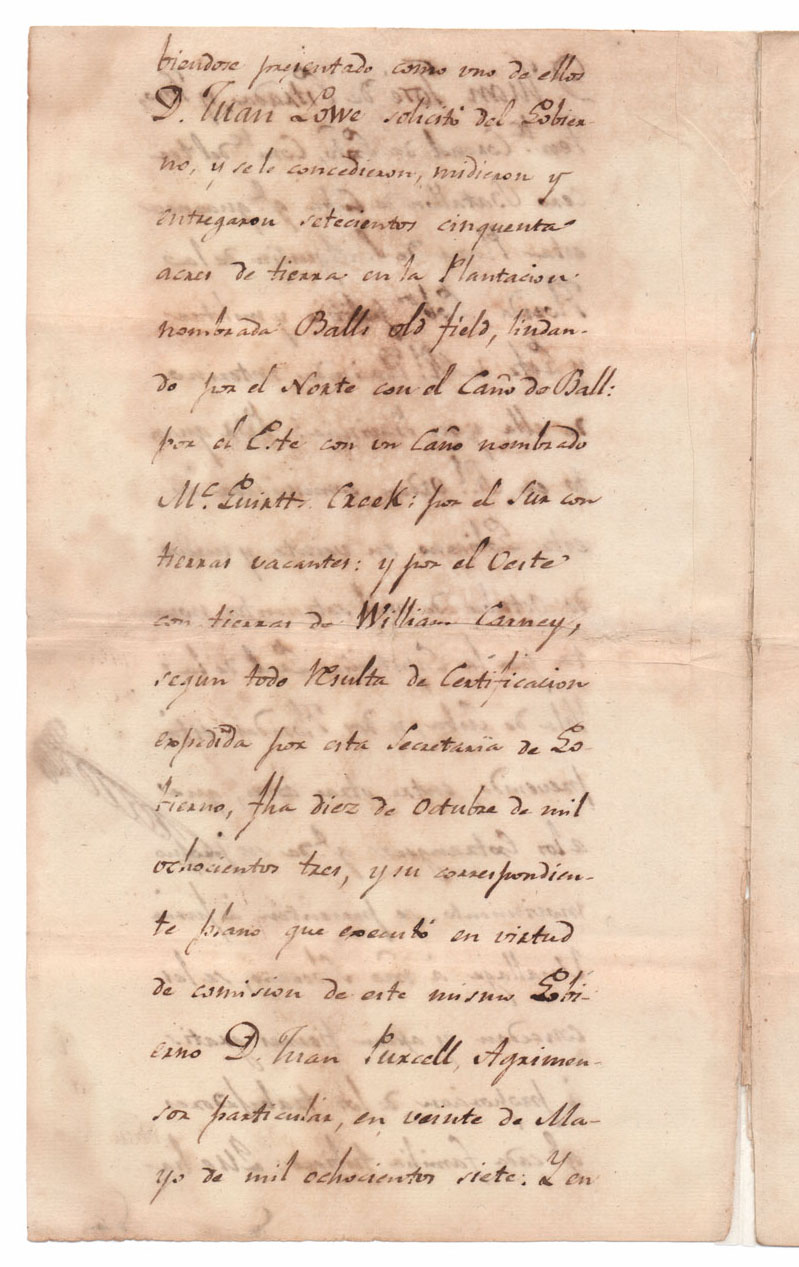 biendose presentado como uno de ellos
D. Juan Lowe solicitó del Gobier-
no, y se le concedieron, midieron y
entregaron setecientos cinquenta
acres de tierra en la Plantacion
nombrada Balls old field, lindan-
do por el Norte con el Caño de Ball:
por el Este con un Caño nombrado
Mc. Creek: por el Sur con
tierras vacantes: y por el Oeste
con tierras de William Carney,
segun todo resulta de Certificacion
expedida por esta Secretaria de Go-
bierno, fha diez de Octubre de mil
ochocientos tres, y su correspondien-
te plano que executó en virtud
de comision de este mismo Gobi-
erno D. Juan Purcell, Agrimen-
sor particular, en veinte de Ma-
yo de mil ochocientos siete: Y en